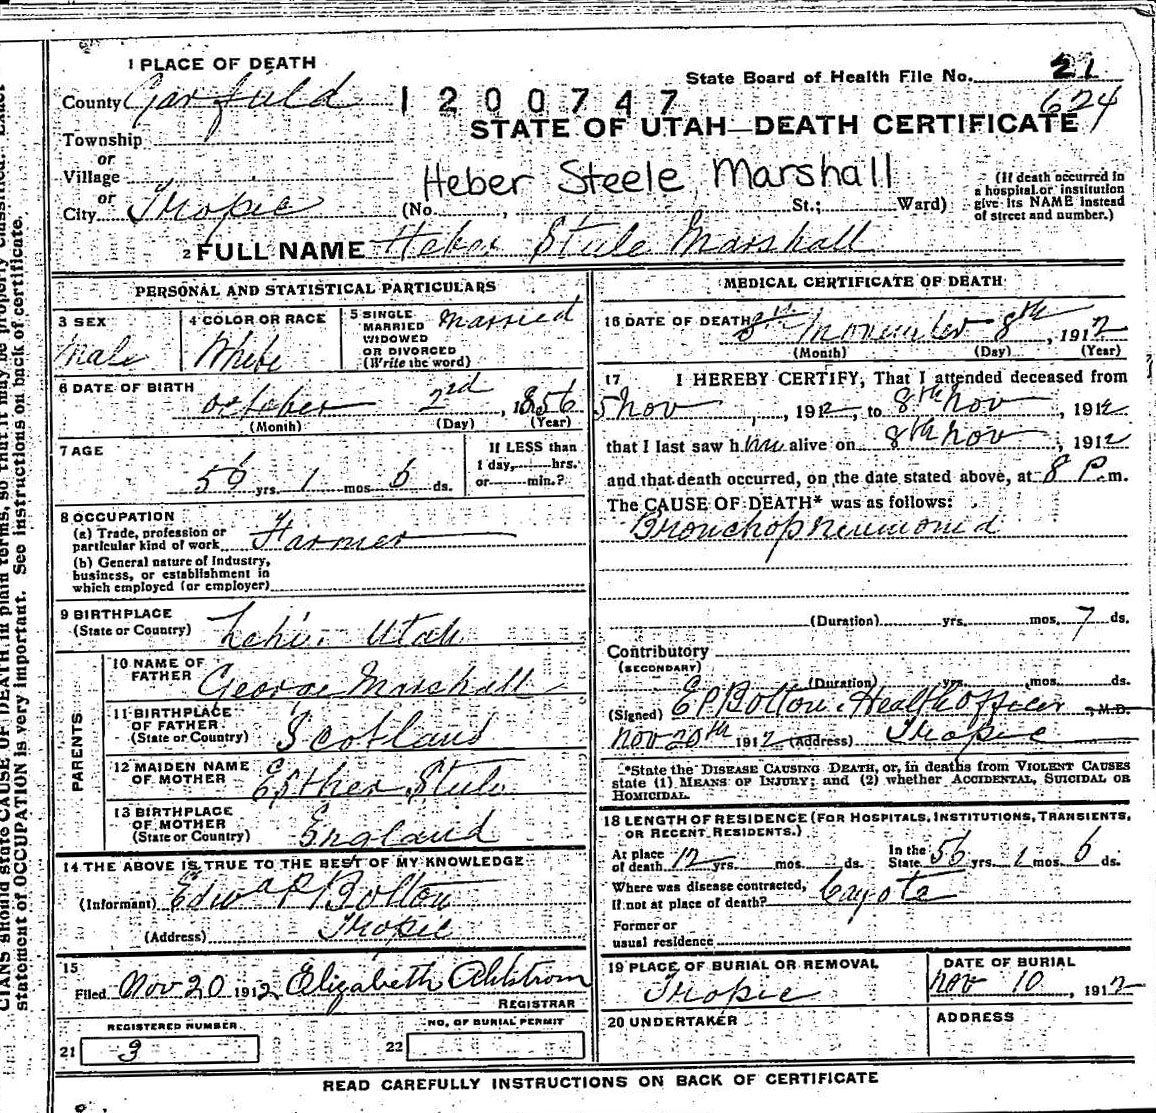 CIANS should state CAUSE OF DEATH in plain terms, so that it may be properly classified. Exact
statement of OCCUPATION is very important. See instructions on back of certificate.
1 PLACE OF DEATH
State Board of Health File No. 21
County Garfield
1200747
624
STATE OF UTAH—DEATH CERTIFICATE
Township
or
Village
or
City Tropic
Heber Steele Marshall
(No. , St.; Ward)
(If death occurred in
a hospital or institution
give its NAME instead
of street and number.)
2 FULL NAME Heber Steele Marshall
PERSONAL AND STATISTICAL PARTICULARS
3 SEX
Male
4 COLOR OR RACE
White
5 SINGLE
MARRIED
WIDOWED
OR DIVORCED
(Write the word)
Married
6 DATE OF BIRTH
October 2nd, 1856
(Month) (Day) (Year)
7 AGE
56 yrs. 1 mos. 6 ds.
If LESS than
1 day, hrs.
or min.?
8 OCCUPATION
(a) Trade, profession or
particular kind of work Farmer
(b) General nature of Industry,
business, or establishment in
which employed (or employer)
9 BIRTHPLACE
(State or Country) Lehi. Utah
PARENTS
10 NAME OF
FATHER George Marshall
11 BIRTHPLACE
OF FATHER
(State or Country) Scotland
12 MAIDEN NAME
OF MOTHER Esther Steele
13 BIRTHPLACE
OF MOTHER
(State or Country) England
14 THE ABOVE IS TRUE TO THE BEST OF MY KNOWLEDGE
(Informant) Edw P Bolton
(Address) Tropic
15
Filed Nov 20 1912 Elizabeth Ahlstrom
REGISTRAR
REGISTERED NUMBER
21 3
NO. OF BURIAL PERMIT
22
MEDICAL CERTIFICATE OF DEATH
16 DATE OF DEATH 8th November 8th, 1912
(Month) (Day) (Year)
17 I HEREBY CERTIFY, That I attended deceased from
5 Nov, 1912, to 8th Nov, 1912
that I last saw him alive on 8th Nov, 1912
and that death occurred, on the date stated above, at 8 P.m.
The CAUSE OF DEATH* was as follows:
Bronchopneumonia
(Duration) yrs. mos. 7 ds.
Contributory
(SECONDARY)
(Duration) yrs. mos. ds.
(Signed) E P Bolton. Health officer, M.D.
Nov 20th 1912 (Address) Tropic
*State the DISEASE CAUSING DEATH, or, in deaths from VIOLENT CAUSES
state (1) MEANS OF INJURY; and (2) whether ACCIDENTAL, SUICIDAL OR
HOMICIDAL.
18 LENGTH OF RESIDENCE (FOR HOSPITALS, INSTITUTIONS, TRANSIENTS,
OR RECENT RESIDENTS.)
At place
of death 12 yrs. mos. ds.
In the
State 56 yrs. 1 mos. 6 ds.
Where was disease contracted,
if not at place of death? Cayote
Former or
usual residence
19 PLACE OF BURIAL OR REMOVAL
Tropic
DATE OF BURIAL
Nov 10, 1912
20 UNDERTAKER
ADDRESS
READ CAREFULLY INSTRUCTIONS ON BACK OF CERTIFICATE